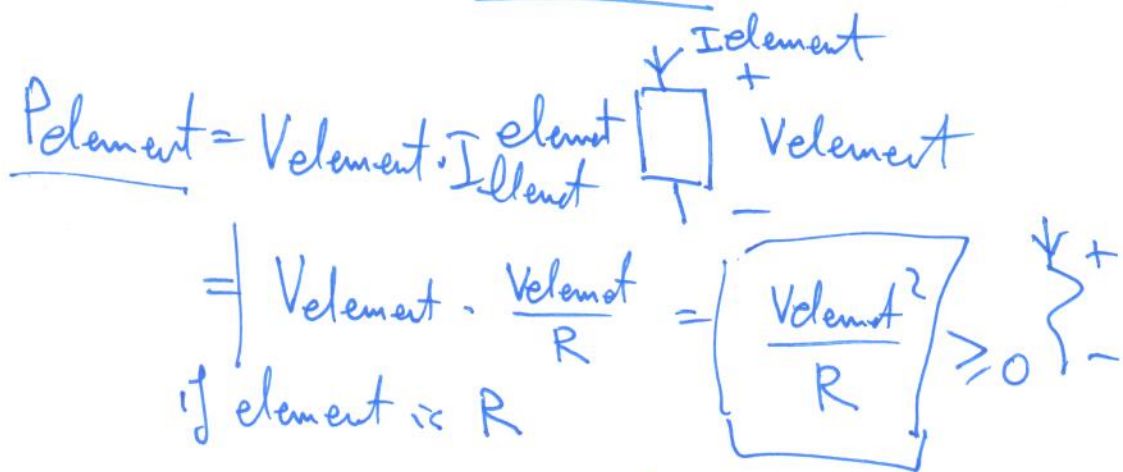 Ielement
+
Pelement = Velement · I element
Illemt
Velement
−
= | Velement · Velemet / R = Velemt² / R ≥ 0
+
−
if element is R